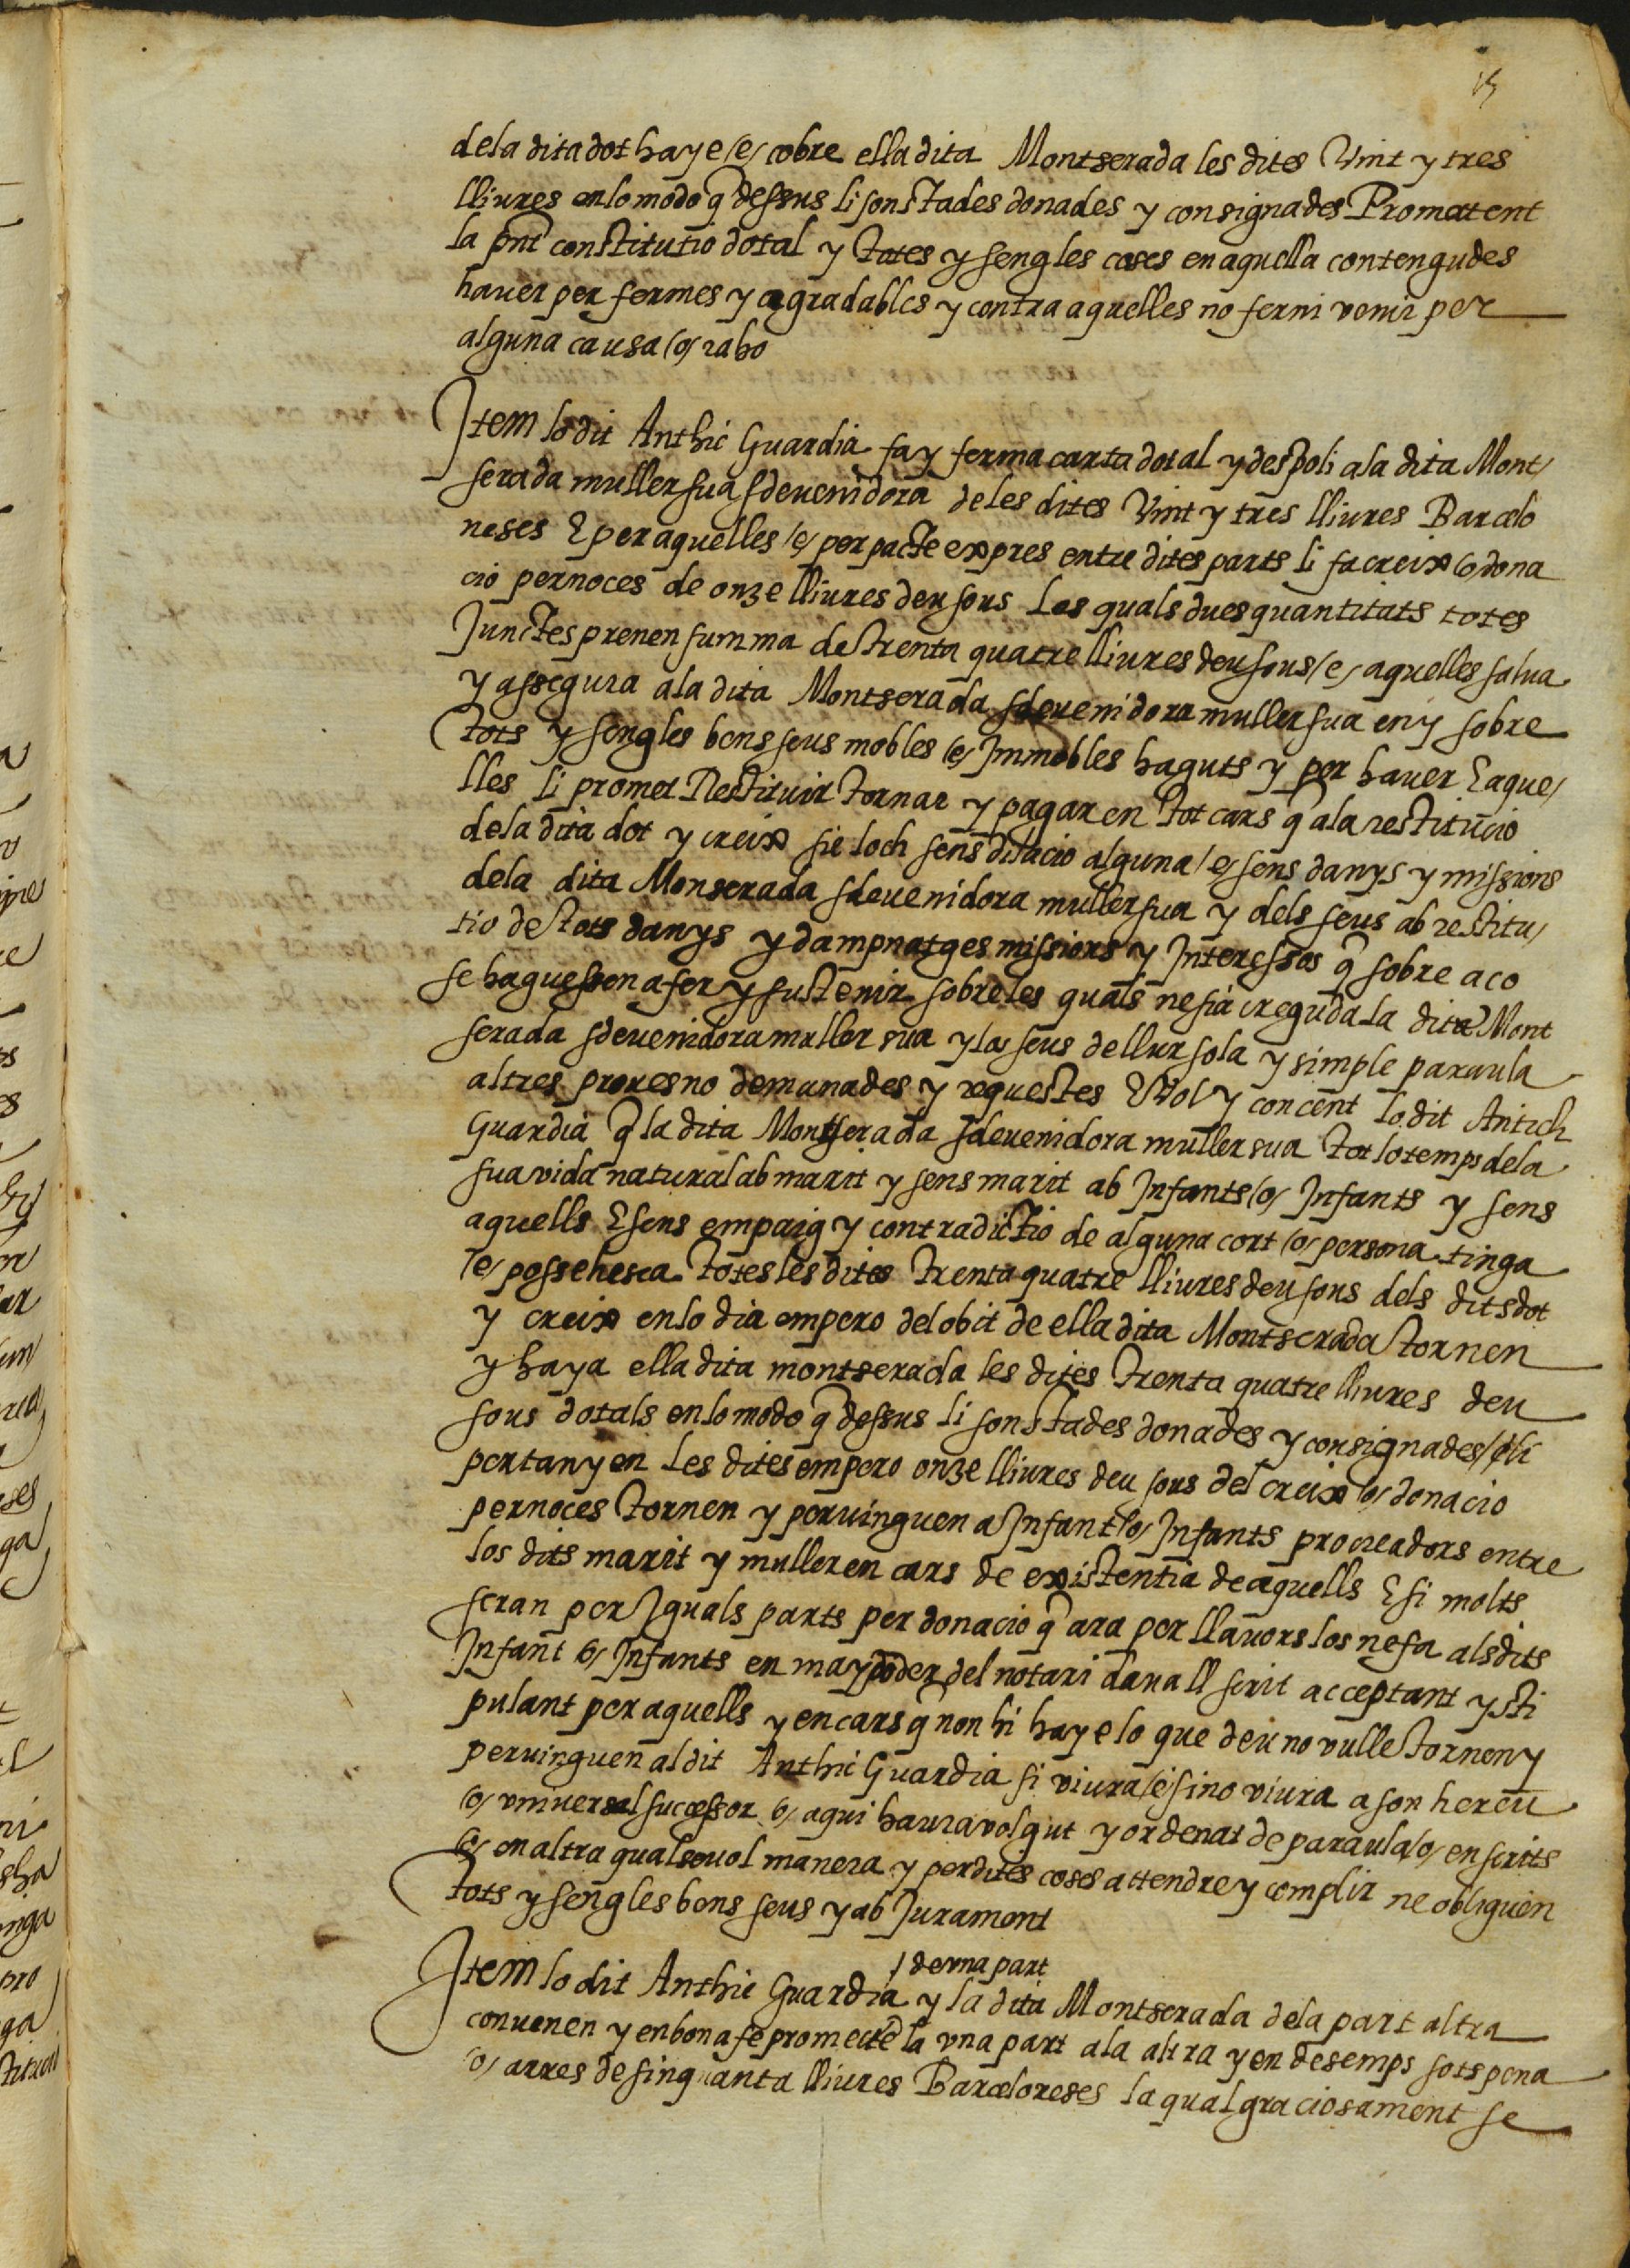 15
dela dita dot haye /e/ cobre ella dita Montserada les dites Vint y tres
lliures en lo modo q̃ dessus li son stades donades y consignades Prometent
la pñt constitutio dotal y totes y sengles coses en aquella contengudes
hauer per fermes y agradables y contra aquelles no fer ni venir per
alguna causa /o/ raho
Item lo dit Anthic Guardia fa y ferma carta dotal y despoli ala dita Mont/
serada muller sua sdeuenidora de les dites Vint y tres lliures Barcelo
neses E per aquelles /e/ per pacte expres entre dites parts li fa creix /o/ dona
cio per noces de onze lliures deu sous Les quals dues quantitats totes
Junctes prenen summa de trenta quatre lliures deu sous /e/ aquelles salua
y assegura ala dita Montserada sdeuenidora muller sua en y sobre
tots y sengles bens seus mobles /e/ Immobles haguts y per hauer E aque/
lles li promet Restituir tornar y pagar en tot cars q̃ ala restitucio
dela dita dot y creix sie loch sens dilacio alguna /e/ sens danys y missions
dela dita Monserada sdeuenidora muller sua y dels seus ab restitu/
tio de tots danys y dampnatges missions y Interessos q̃ sobre aco
se haguessen a fer y sustenir sobre les quals ne sia creguda la dita Mont
serada sdeuenidora muller sua y los seus de llur sola y simple paraula
altres proues no demanades y requestes E Vol y concent lo dit Antich
Guardia q̃ la dita Montserada sdeuenidora muller sua tot lo temps dela
sua vida natural ab marit y sens marit ab Infants /o/ Infants y sens
aquells E sens empaig y contradictio de alguna cort /o/ persona tinga
/e/ possehesca totes les dites trenta quatre lliures deu sous dels dits dot
y creix en lo dia empero del obit de ella dita Montserada tornen
y haya ella dita montserada les dites trenta quatre lliures deu
sous dotals en lo modo q̃ dessus li son stades donades y consignades /o/ li
pertanyen Les dites empero onze lliures deu sous del creix /o/ donacio
per noces tornen y peruinguen a Infant /o/ Infants procreadors entre
los dits marit y muller en cars de existentia de aquells E si molts
seran per Iguals parts per donacio q̃ ara per llauors los ne fa als dits
Infant /o/ Infants en ma y poder del notari dauall scrit acceptant y sti
pulant per aquells y en cars q̃ non hi haye lo que deu no vulle tornen y
peruinguen al dit Anthic Guardia si viura /e/ si no viura a son hereu
/o/ vniuersal successor /o/ a qui haura volgut y ordenat de paraula /o/ en scrits
/o/ en altra qualseuol manera y per dites coses attendre y complir ne obliguen
tots y sengles bens seus y ab Jurament
/ de vna part
Item lo dit Anthic Guardia y la dita Montserada dela part altra
conuenen y en bona fe promettẽ la vna part ala altra y en desemps sots pena
/o/ arres de sinquanta lliures Barceloneses la qual graciosament se